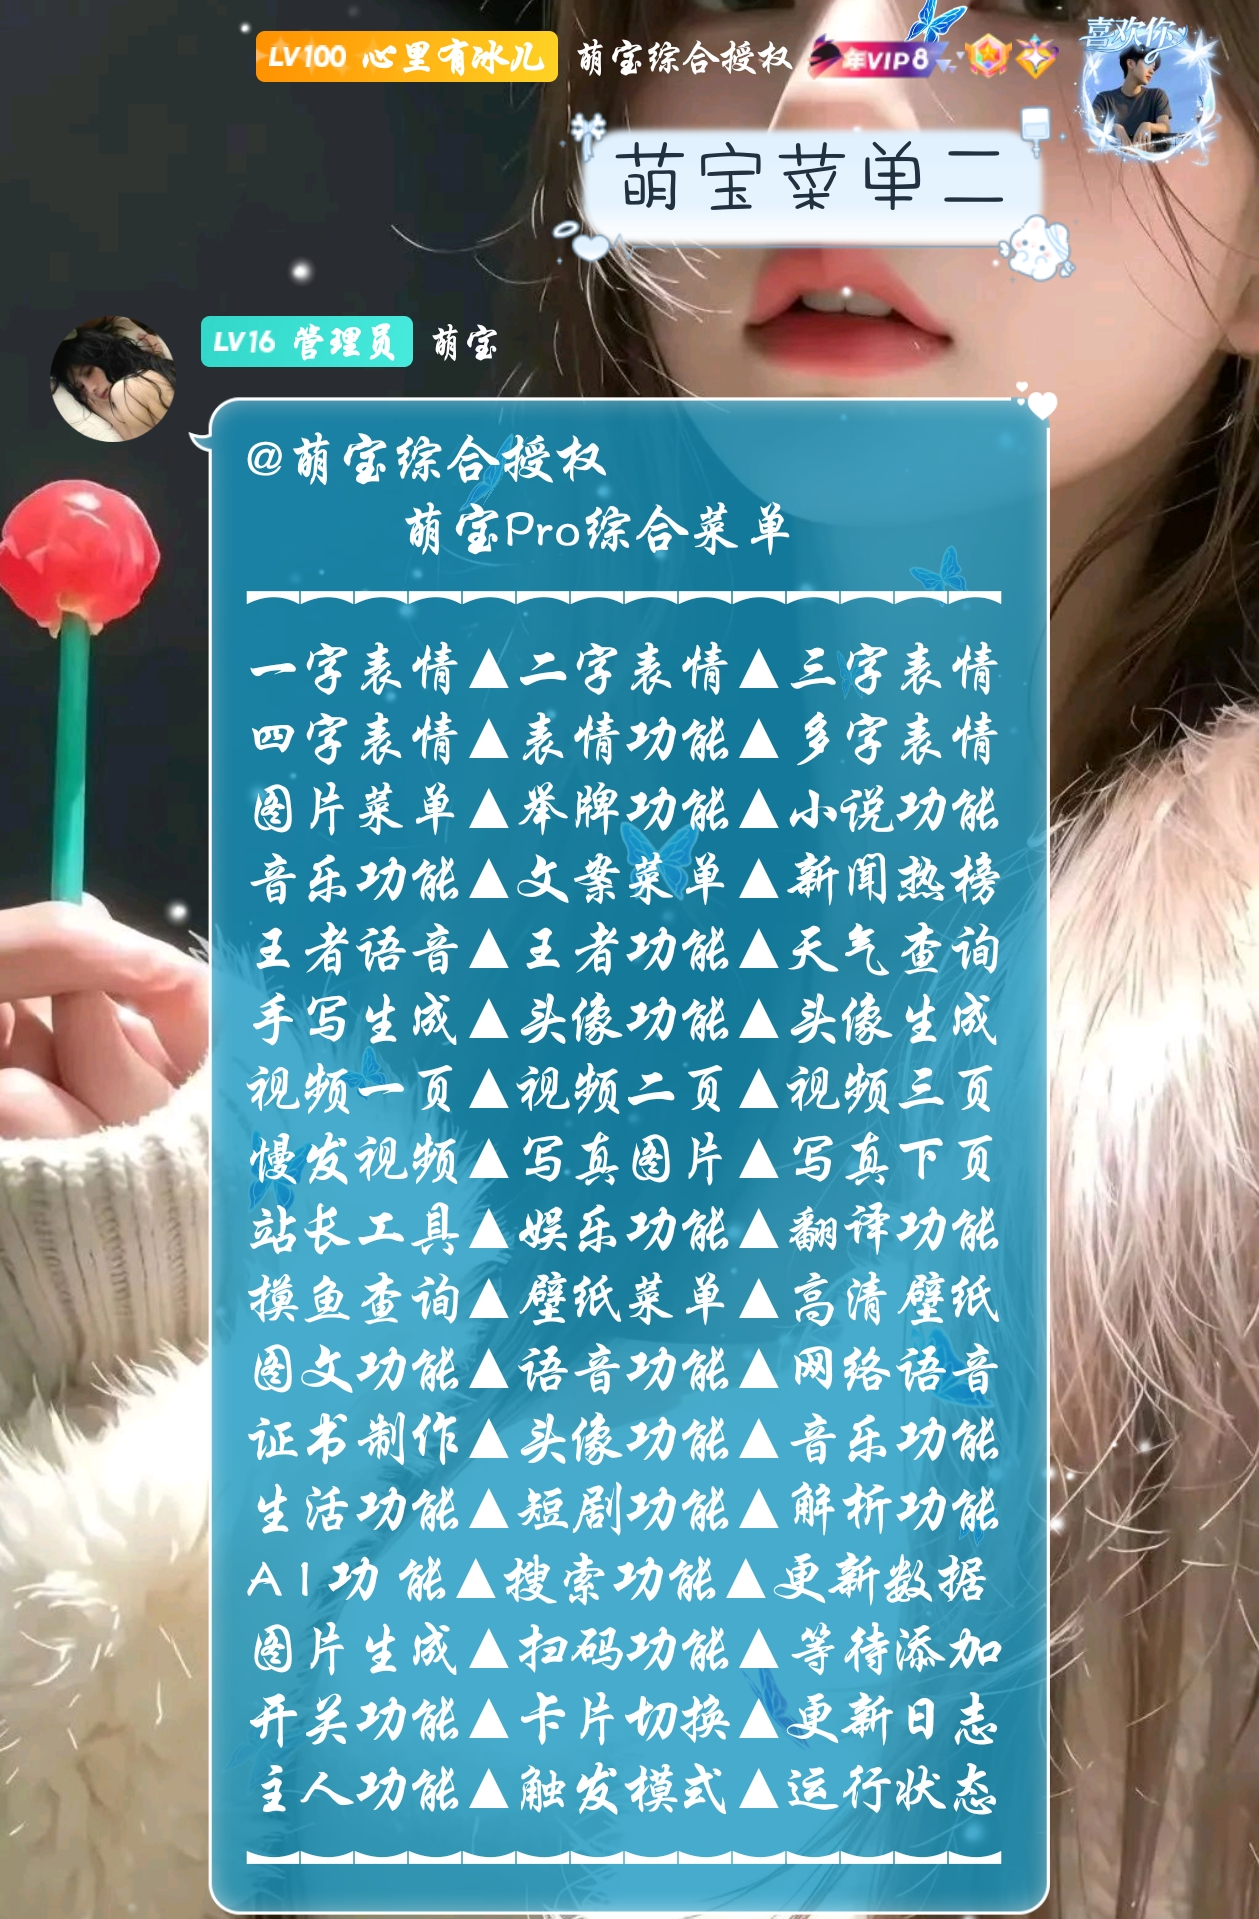 LV100 心里有冰儿 萌宝综合授权 年VIP8
喜欢你
萌宝菜单二
LV16 管理员 萌宝
@萌宝综合授权
萌宝Pro综合菜单
一字表情▲二字表情▲三字表情
四字表情▲表情功能▲多字表情
图片菜单▲举牌功能▲小说功能
音乐功能▲文案菜单▲新闻热榜
王者语音▲王者功能▲天气查询
手写生成▲头像功能▲头像生成
视频一页▲视频二页▲视频三页
慢发视频▲写真图片▲写真下页
站长工具▲娱乐功能▲翻译功能
摸鱼查询▲壁纸菜单▲高清壁纸
图文功能▲语音功能▲网络语音
证书制作▲头像功能▲音乐功能
生活功能▲短剧功能▲解析功能
AI功 能▲搜索功能▲更新数据
图片生成▲扫码功能▲等待添加
开关功能▲卡片切换▲更新日志
主人功能▲触发模式▲运行状态